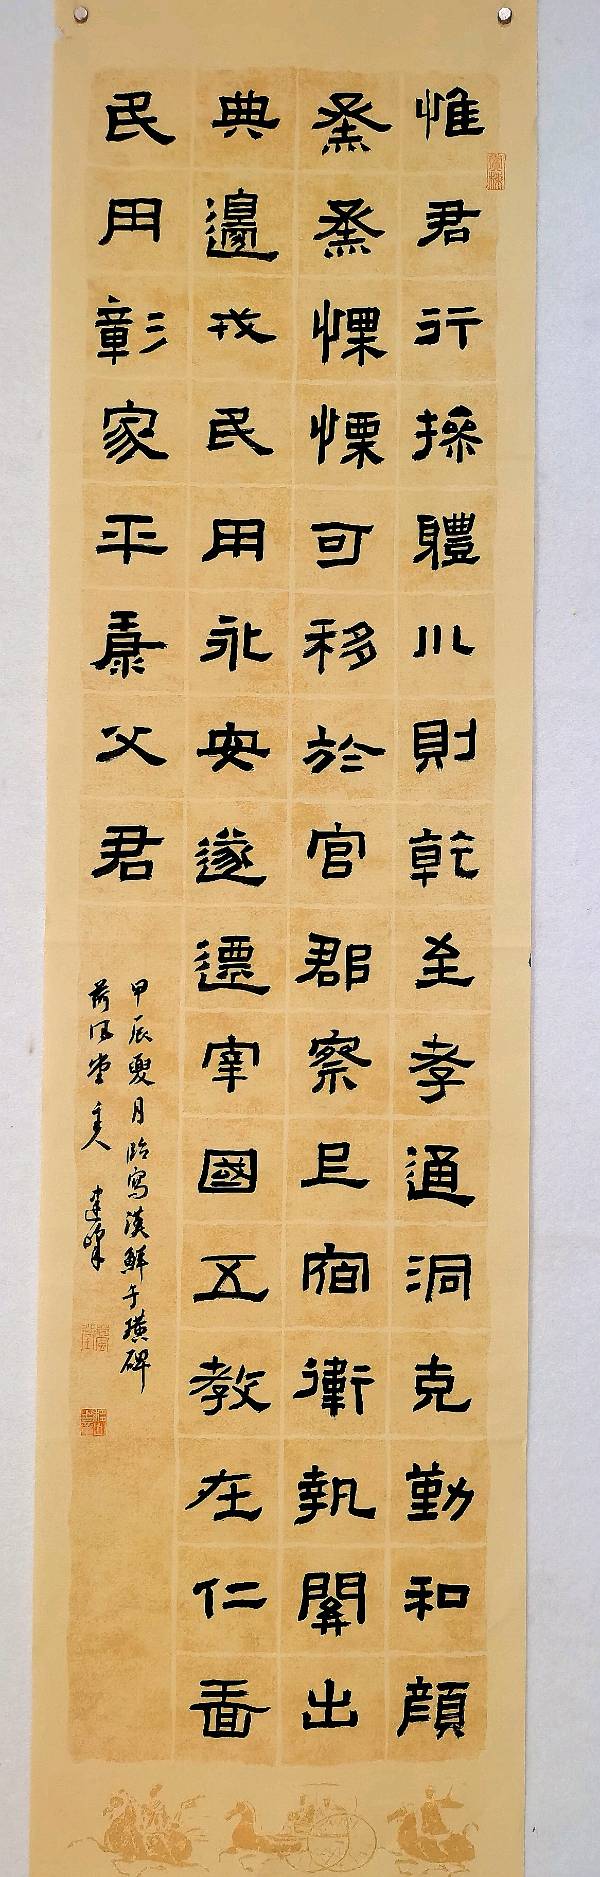 惟君行操體川則乾至孝通洞克勤和顔
烝烝慄慄可移於官郡察巨宿衛執關出
典邊戎民用永安遂遷宰國五教在仁嗇
民用彰家平康父君
甲辰夏月臨寫漢鮮于璜碑
荷風堂主人建峰